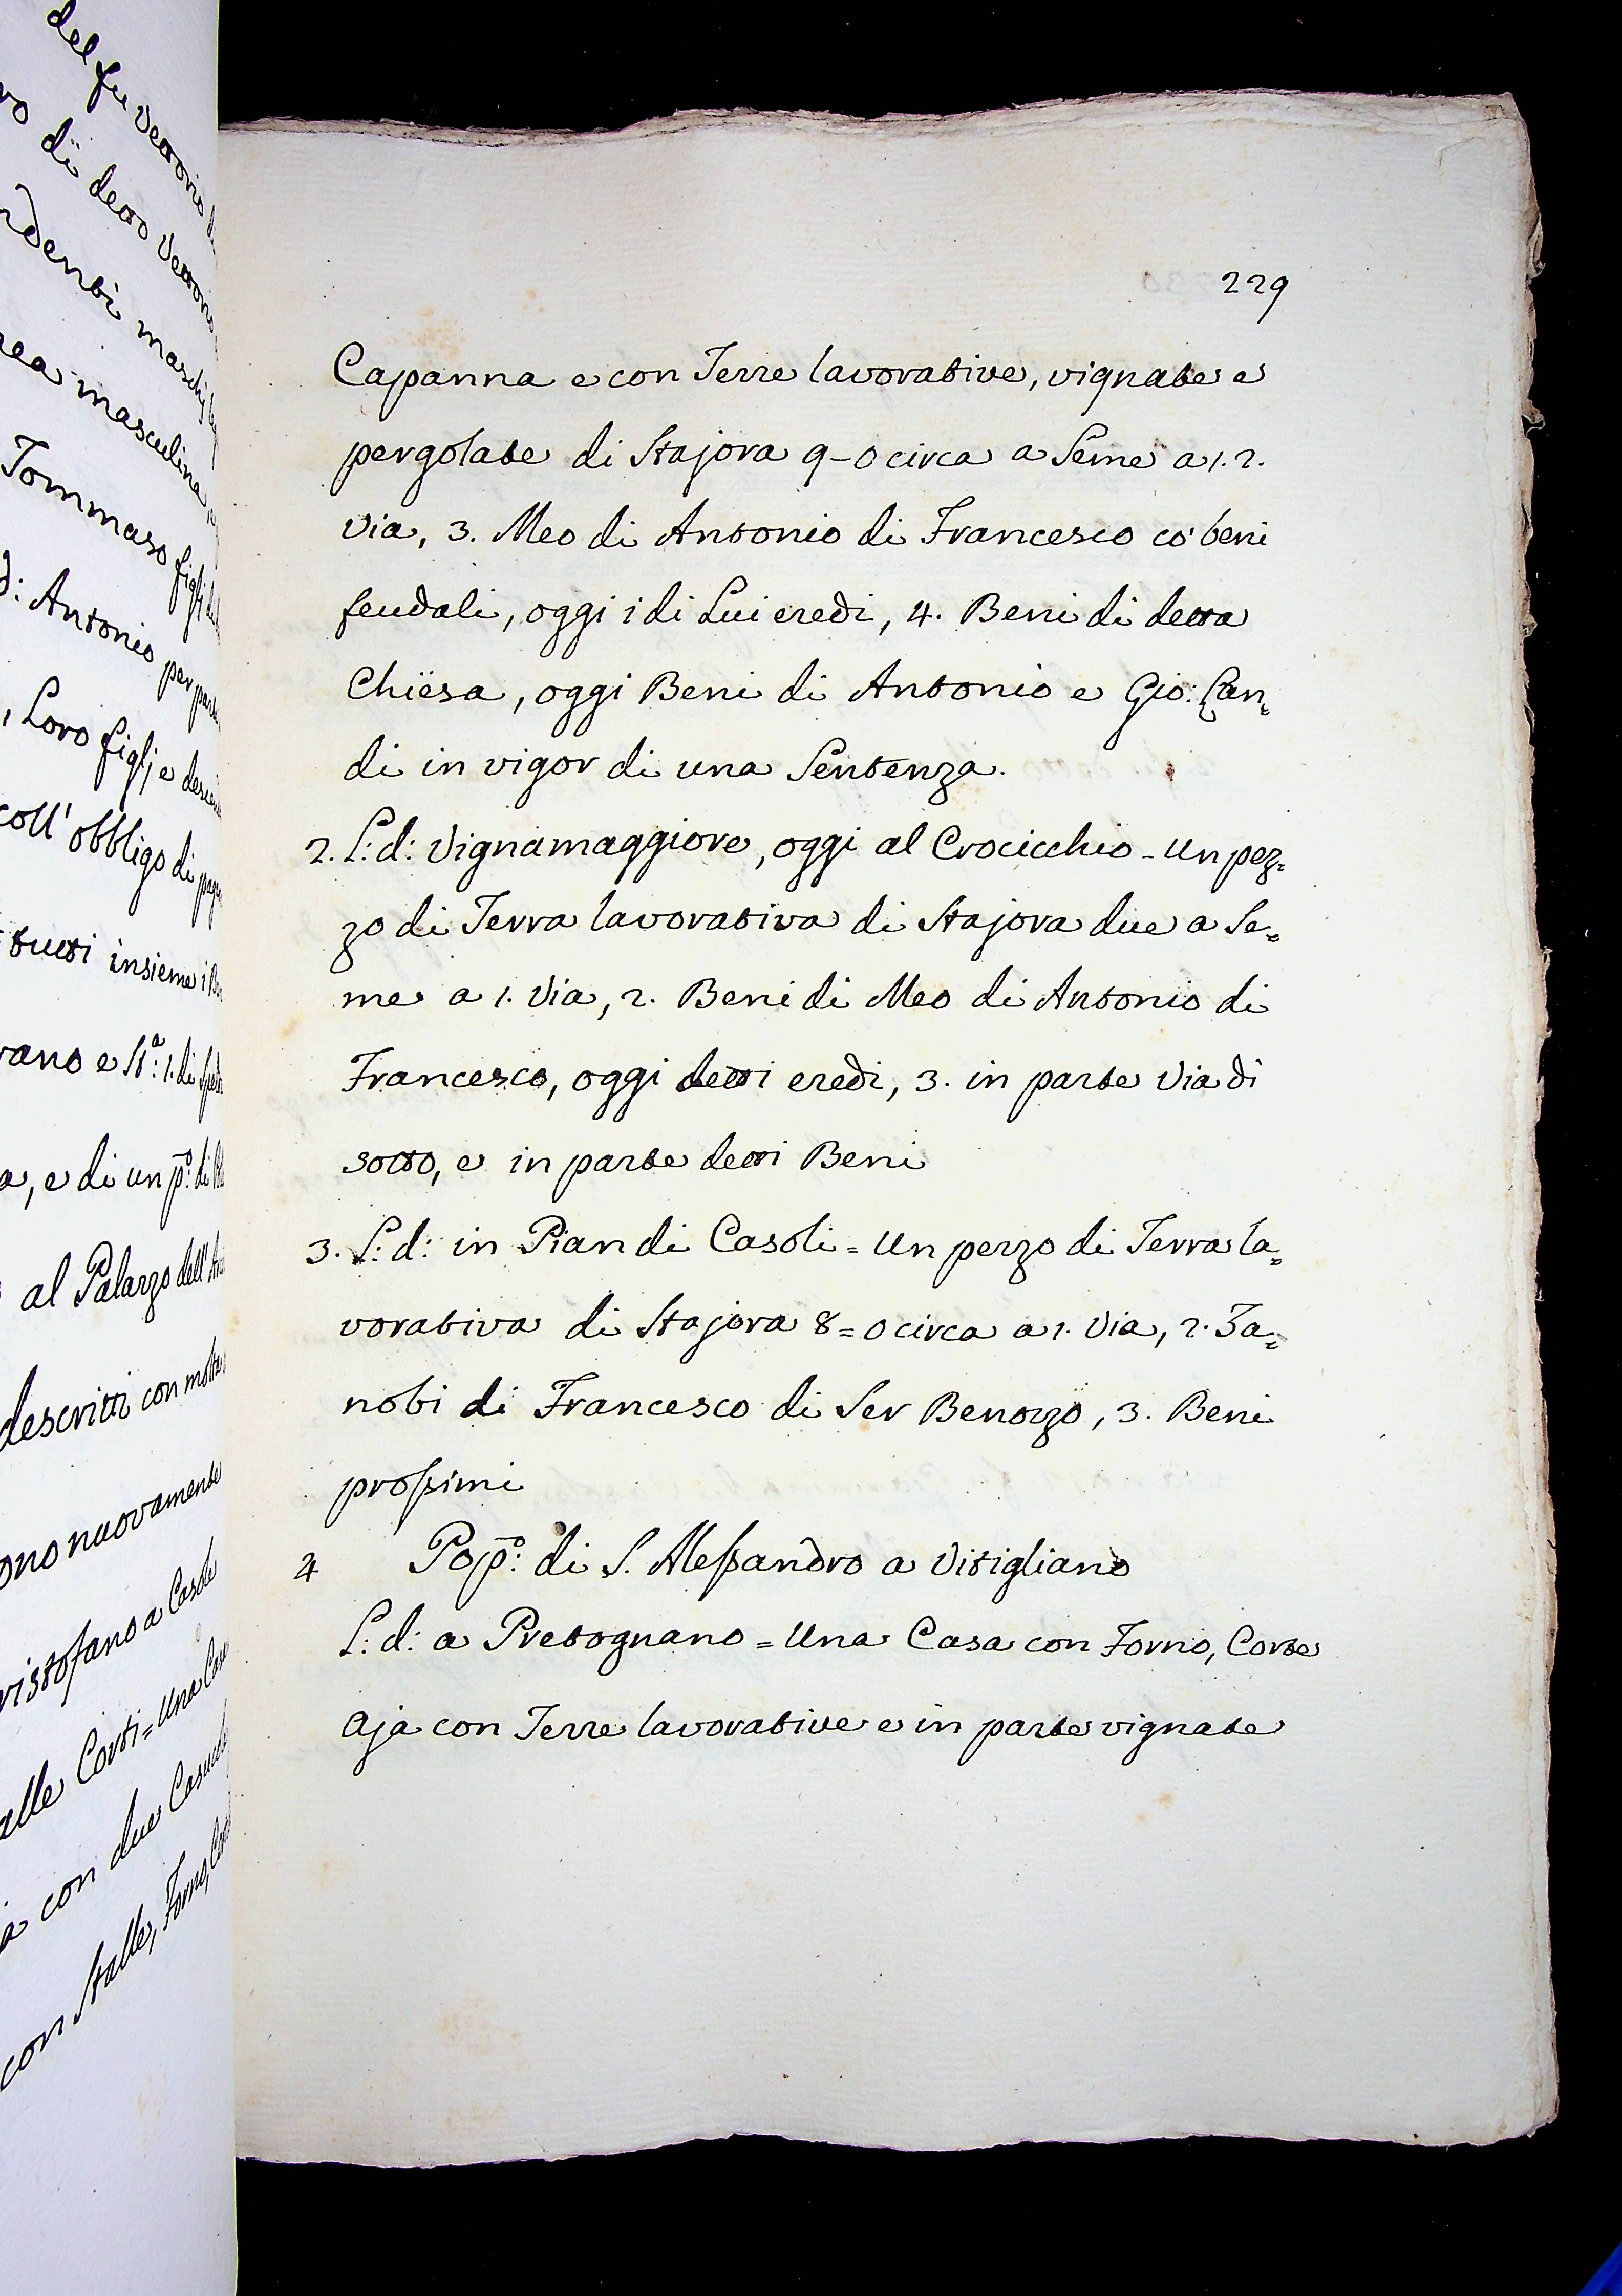 del fu
di detto
mascolina
Tommaso figlj
d: Antonio per
, Loro figlj e
coll' obbligo di
tutti insieme i
a, e di un p:º di
al Palazzo dell'
descritti con
nuovamente
a Casole
alle Corti = Una
con due
con Stalle, Forno,
229
Capanna e con Terre lavorative, vignate e
pergolate di Stajora 9-0 circa a Seme a 1. 2.
via, 3. Meo di Antonio di Francesco co' beni
feudali, oggi i di Lui eredi, 4. Beni di detta
Chiesa, oggi Beni di Antonio e Gio: Can=
di in vigor di una Sentenza.
2. L: d: Vignamaggiore, oggi al Crocicchio - Un pez=
zo di Terra lavorativa di Stajora due a Se=
me a 1. Via, 2. Beni di Meo di Antonio di
Francesco, oggi detti eredi, 3. in parte Via di
sotto, e in parte detti Beni
3. L: d: in Pian di Casoli = Un pezzo di Terra la=
vorativa di Stajora 8=0 circa a 1. Via, 2. Za=
nobi di Francesco di Ser Benozzo, 3. Beni
prossimi
4 Pop:º di S. Alessandro a Vitigliano
L: d: a Pretognano = Una Casa con Forno, Corte
Aja con Terre lavorative e in parte vignate